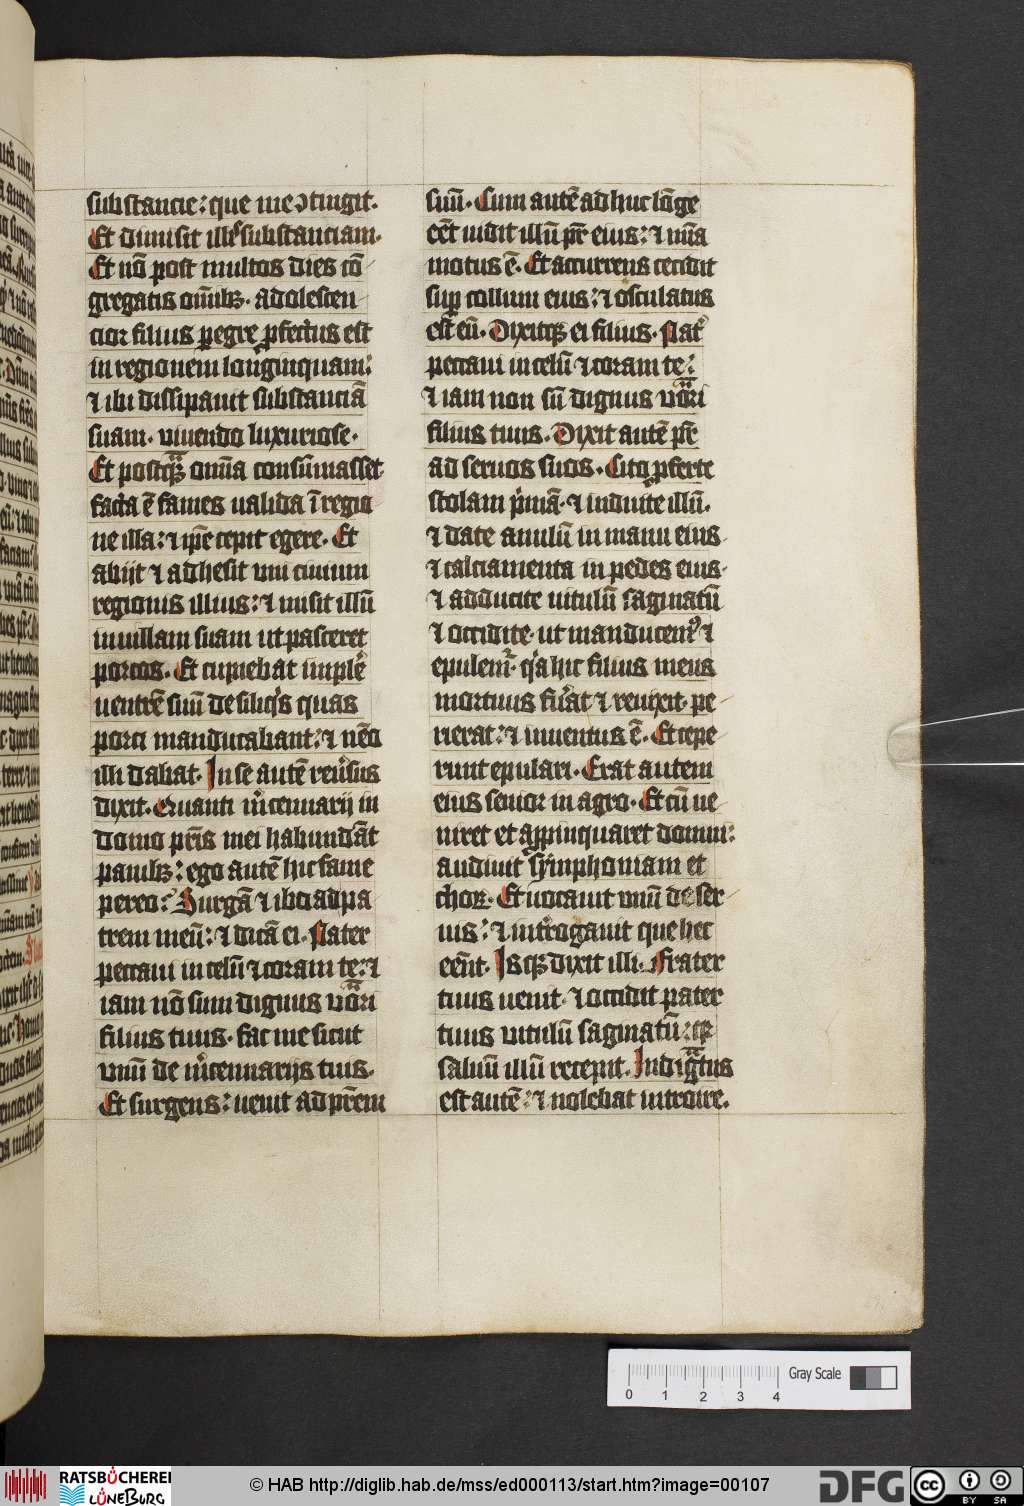 substancie: que me ↄtingit.
Et diuisit illis substanciam.
Et nō post multos dies cō
gregatis omībꝫ. adolescen
cior filius peregre pfectus est
in regionem longinquam:
⁊ ibi dissipauit substanciā
suam. viuendo luxuriose.
Et postqꝫ omīa consūmasset
facta ē fames ualida ī regio
ne illa: ⁊ ip̄e cepit egere. Et
abijt ⁊ adhesit vni ciuium
regionis illius: ⁊ misit illū
in uillam suam ut pasceret
porcos. Et cupiebat implē
uentrē suū de siliqis quas
porci manducabant: ⁊ nēo
illi dabat. In se autē reu̓sus
dixit. Quanti m̓cennarij in
domo pr̄is mei habundāt
panibꝫ: ego autē hic fame
pereo: Surgā ⁊ ibo ad pa
trem meū: ⁊ dicā ei. Pater
peccaui in celū ⁊ coram te: ⁊
iam nō sum dignus vo̅ri
filius tuus. fac me sicut
vnū de m̓cennarijs tuis.
Et surgens: uenit ad pr̄em
suū. Cum autē ad huc lōge
eēt uidit illū pr̄ eius: ⁊ mīa
motus ē. Et accurrens cecidit
sup collum eius: ⁊ osculatus
est eū. Dixitqꝫ ei filius. Pat̓
peccaui in celū ⁊ coram te:
⁊ iam non sū dignus vo̅ri
filius tuus. Dixit autē pr̄
ad seruos suos. Cito pferte
stolam p̓mā. ⁊ induite illū.
⁊ date anulū in manu eius.
⁊ calciamenta in pedes eius.
⁊ adducite uitulū saginatū
⁊ occidite. ut manducem᷒ ⁊
epulem̓. qa hic filius meus
mortuus fu̓at ⁊ reuixit. pe
rierat: ⁊ inuentus ē. Et cepe
runt epulari. Erat autem
eius senior in agro. Et cū ue
niret et appinquaret domui:
audiuit symphoniam et
choꝝ. Et uocauit vnū de ser
uis: ⁊ int̓rogauit que hec
eēnt. Isqꝫ dixit illi. Frater
tuus uenit. ⁊ occidit pater
tuus vitulū saginatū: qꝛ
saluū illū recepit. Indigtus
est autē: ⁊ nolebat introire.
0 1 2 3 4 Gray Scale
RATSBÜCHEREI
LÜNEBURG
© HAB http://diglib.hab.de/mss/ed000113/start.htm?image=00107
DFG
cc BY SA